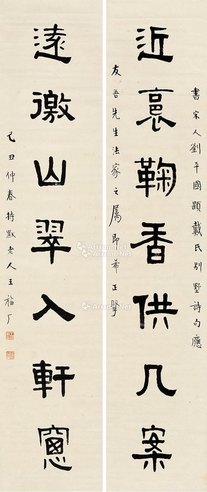 近裛鞠香供几案
書宋人劉平國題戴氏別墅詩句應
友吾先生法家之屬即希正擥
遠徼山翠入軒窗
己丑仲春持默老人王福厂